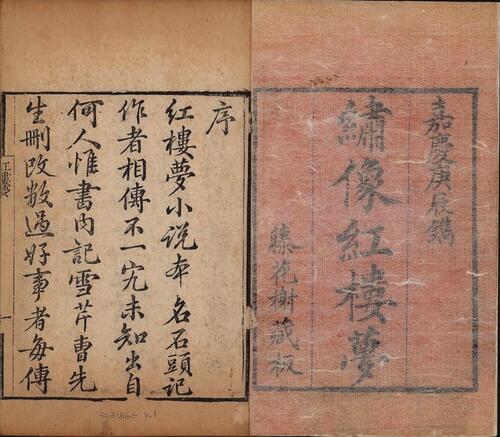 嘉慶庚辰鐫
繡像紅樓夢
藤花榭藏板
序
紅樓夢小說本名石頭記
作者相傳不一究未知出自
何人惟書內記雪芹曹先
生刪改數過好事者每傳
紅樓夢
一